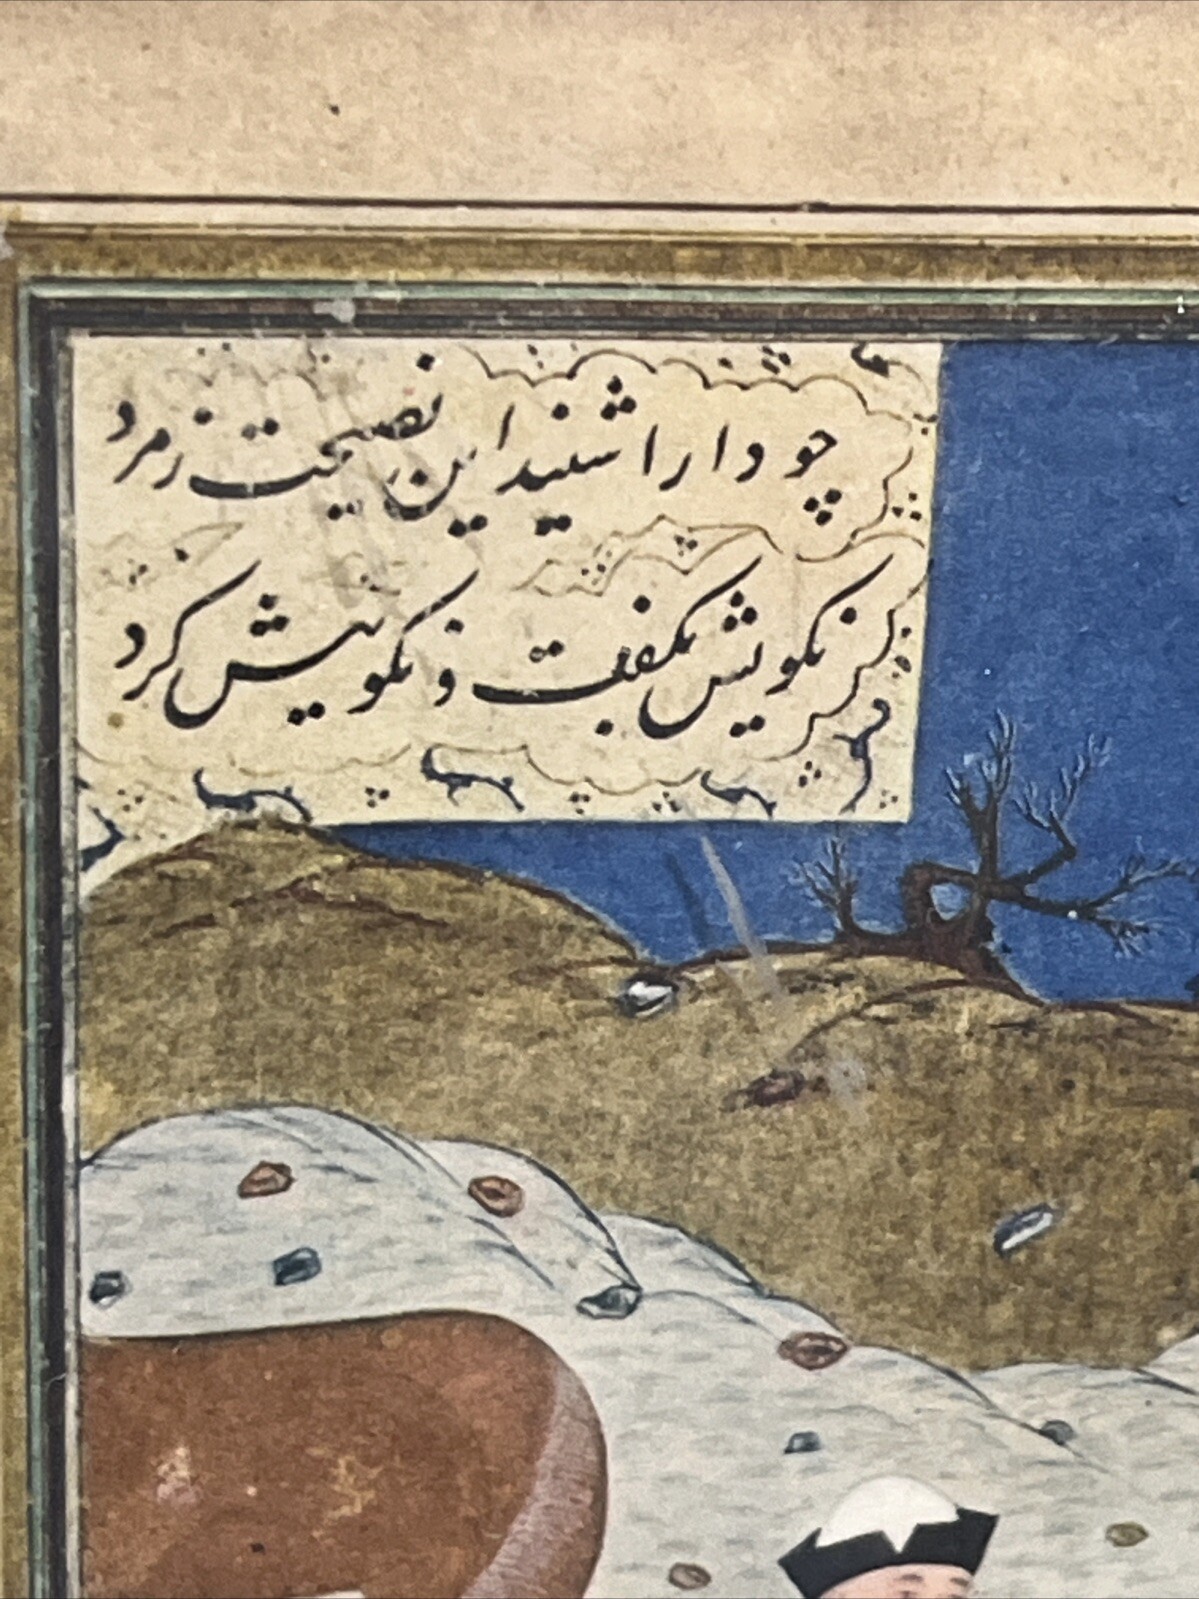 چو دارا شنید این نصیحت ز مرد
نکویش بگفت و نکوییش کرد